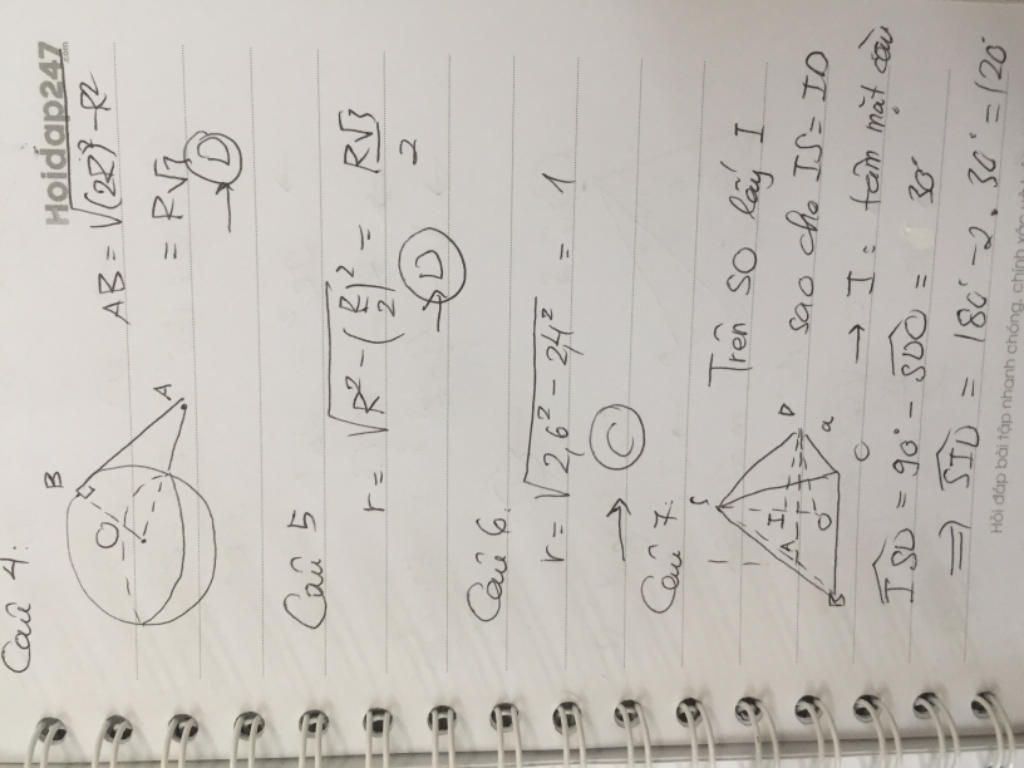 Hoidap247
.com
Câu 4:
B
A
O
AB = √((2R)² - R²)
= R√3
→ D
Câu 5
r = √(R² - (R/2)²) = R√3/2
→ D
Câu 6.
r = √(2,6² - 2,4²) = 1
→ C
Câu 7.
S
I
A
D
O
B
C
a
Trên SO lấy I
sao cho IS = ID
→ I : tâm mặt cầu
ISD = 90° - SDO = 30°
⇒ SID = 180° - 2.30° = 120°
Hỏi đáp bài tập nhanh chóng, chính xác